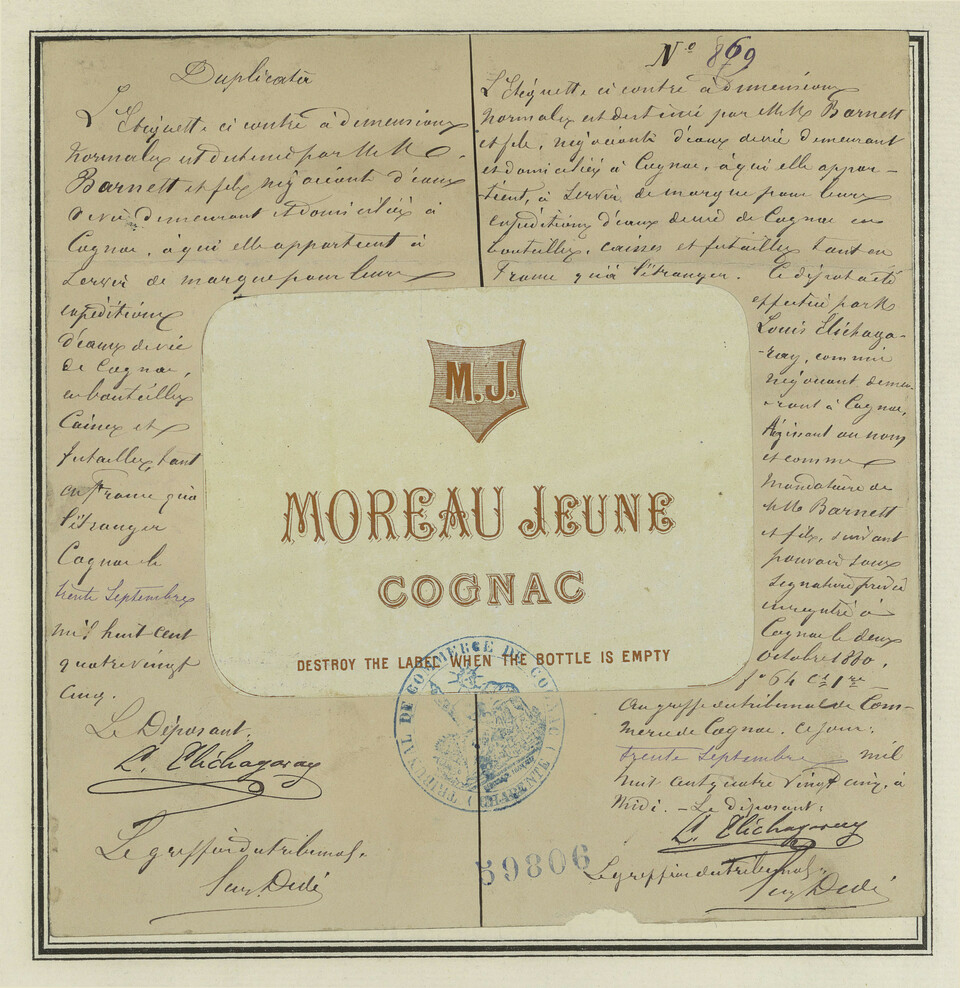 Duplicata
L'Etiquette ci contre à dimensions
Normales est destiné par M M
Barnett et fils négociants d'eaux
de vie demeurant et domiciliés à
Cognac, à qui elle appartient à
Servir de marque pour leurs
expéditions
d'eaux de vie
de Cognac,
en bouteilles
Caisses et
futailles, tant
en France qu'à
l'étranger
Cognac le
trente Septembre
mil huit cent
quatre vingt
cinq.
Le Déposant:
L. Elichagaray
Le greffier du tribunal.
Dedé
No 869
L'Etiquette ci contre à dimensions
Normales est destiné par M M Barnett
et fils, négociants d'eaux de vie demeurant
et domiciliés à Cognac, à qui elle appar-
tient, à Servir de marque pour leurs
expéditions d'eaux de vie de Cognac en
bouteilles, caisses et futailles tant en
France qu'à l'étranger. Ce dépôt a été
effectué par M
Louis Elichaga-
-ray, commis
négociant demeu-
-rant à Cognac,
Agissant au nom
et comme
Mandataire de
M M Barnett
et fils, suivant
pouvoir sous
Signature privée
enregistré à
Cognac le deux
Octobre 1880,
fo 64 Cs 1re
Au greffe du tribunal de Com-
merce de Cognac. Ce jour:
trente Septembre mil
huit cent quatre vingt cinq, à
Midi. - Le déposant:
L. Elichagaray
Le greffier du tribunal:
Dedé
M.J.
MOREAU JEUNE
COGNAC
DESTROY THE LABEL WHEN THE BOTTLE IS EMPTY
TRIBUNAL DE COMMERCE DE COGNAC (CHARENTE)
59806